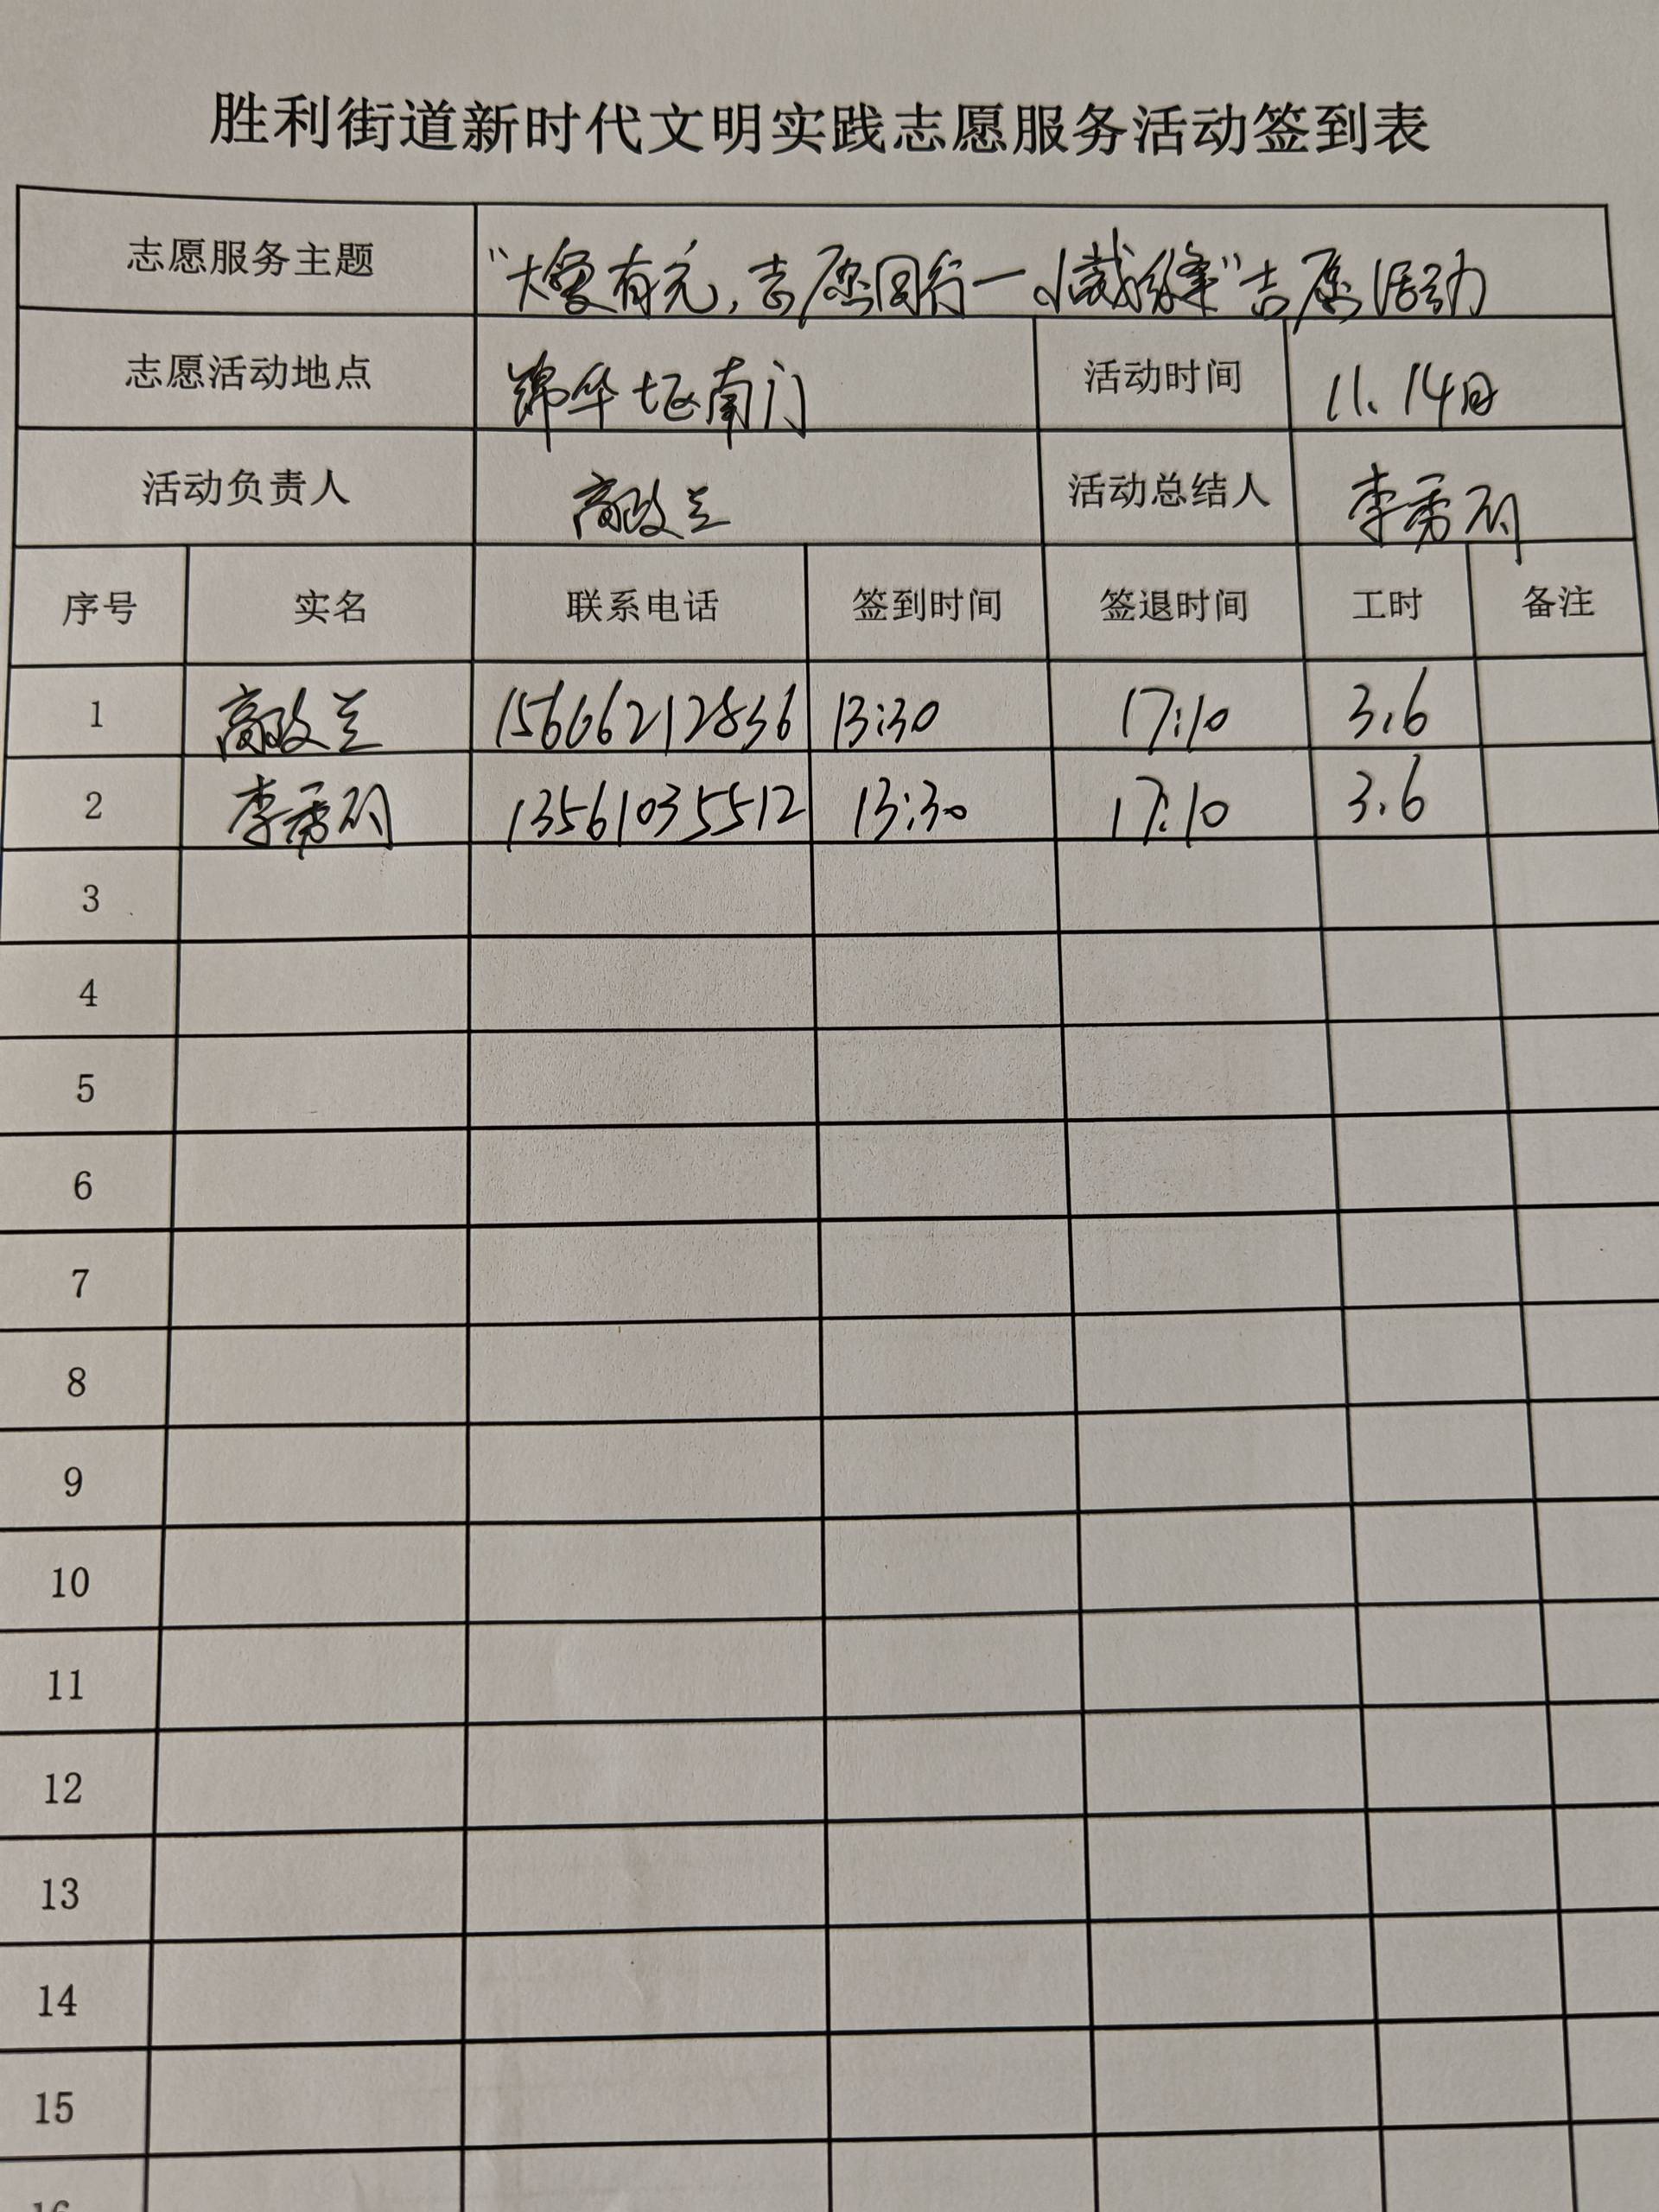 胜利街道新时代文明实践志愿服务活动签到表
志愿服务主题 “大爱有元,志愿同行一小裁缝”志愿活动
志愿活动地点 锦华 南门 活动时间 11.14日
活动负责人 高政兰 活动总结人 李秀
序号 实名 联系电话 签到时间 签退时间 工时 备注
1 高政兰 15606212836 13:30 17:10 3.6
2 李秀 13561035512 13:30 17:10 3.6
3
4
5
6
7
8
9
10
11
12
13
14
15
16